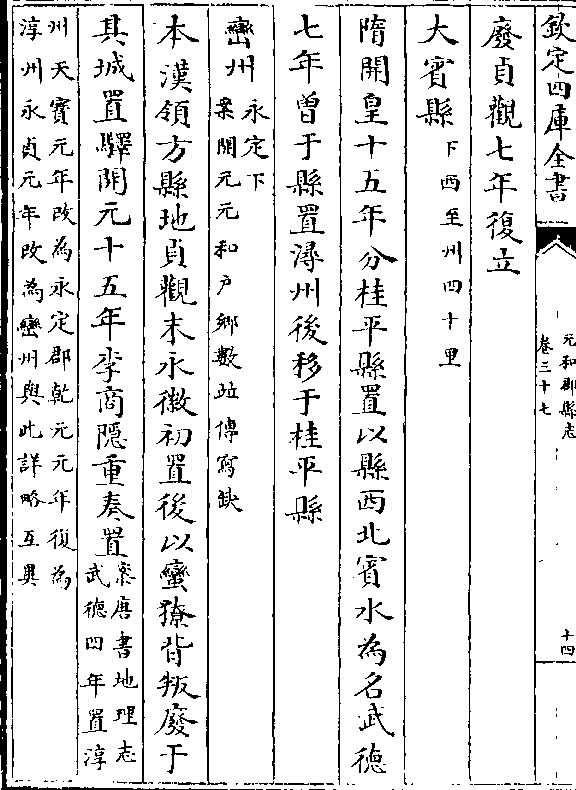 欽定四庫全書
元和郡縣志
卷三十七
十四
廢貞觀七年復立
大賓縣下西至州四十里
隋開皇十五年分桂平縣置以縣西北賓水為名武德
七年曽于縣置潯州後移于桂平縣
巒州永定下
案開元元和户鄉數竝傳寫缺
本漢領方縣地貞觀末永徽初置後以蠻獠背叛廢于
其城置驛開元十五年李商隱重奏置
案唐書地理志
武德四年置淳
州天寶元年改為永定郡乾元元年復為
淳州永貞元年改為巒州與此詳略互異